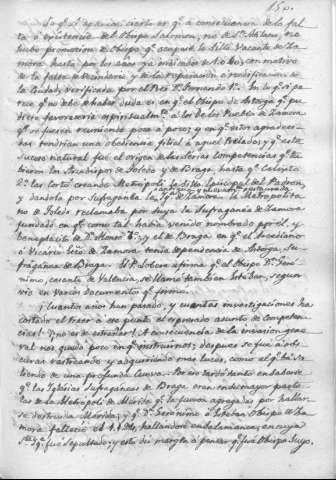 150.
Lo q.e sí aparece cierto es q.e a consecuencia de la fal-
ta ó existencia del Obispo Salomon, no de S.n Atilano, no
hubo promocion de Obispo q.e ocupase la Silla Vacante de Za-
mora hasta por los años ya indicados de
de la falta de vecindario y de la reparacion ó reedificacion de
la Ciudad, verificada por el Rei D.n Fernando 1.º. En lo q.e pa-
rece q.e no debe haber duda es en q.e el Obispo de Astorga q.e pu-
diera favorecerla espiritualm.te á los de los Pueblos de Zamora
q.e se fueron reuniendo poco á poco, y en q.e estos agradeci-
dos tendrian una obediencia filial á aquel Prelado, y q.e este
suceso natural fué el origen de las serias competencias q.e tu-
bieron los Arzobispos de Toledo y de Braga, hasta q.e Calisto
2.º las cortó creando Metrópoli la Silla Episcopal del Padron,
y dandola por Sufraganea la Ygl.a de Zamora. La Metropolita-
no de Toledo reclamaba por suya la Sufraganea de Zamora
fundado en q.e como tal habia venido nombrado por el, y
beneplacito de D.n Alonso 6.º; y el de Braga en q.e el Arcediano
ó Vicario Ecco de Zamora tenia dependencia de Astorga, Su-
fraganea de Braga. El P. Sobera afirma q.e el Obispo D.n Geró-
nimo, cesante de Valencia, se llamó tambien Esteban, segun vió
en varios documentos q.e firmó.
¡Cuantos años han pasado, y cuantas investigaciones ha
costado el traer á ese punto el espresado asunto de competen-
cias! ¡Y no es de estrañar! A consecuencia de la invasion que
val nos quedó poco en q.e instruirnos; despues se fué á obs-
curas rastreando y adquiriendo mas luces, como el q.e vá sa-
liendo de una profunda Cueva. Por eso tardó tanto en saberse
q.e las Yglesias Sufraganeas de Braga eran en la mayor parte
las de la Metrópoli de Mérida q.e la fueron agregadas por hallar-
se destruida Mérida; y q.e D.n Gerónimo ó Esteban Obispo de Za-
mora falleció el 1126, hallandose en Salamanca, en cuya
S.ta Yg.a fué sepultado; y esto dió margen á pensar q.e fué Obispo Suyo,